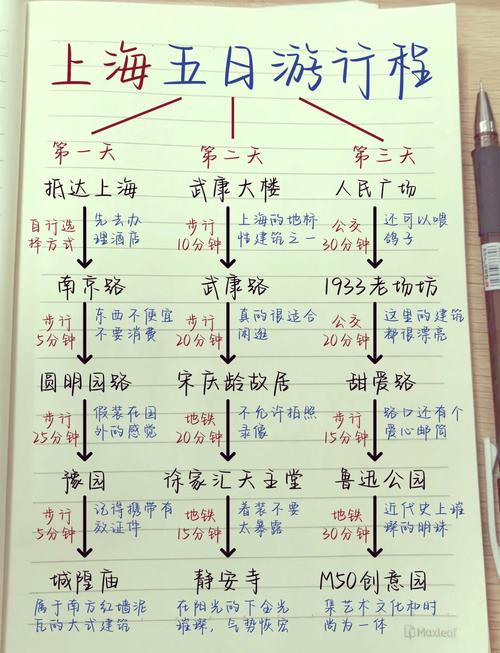 上海五日游行程
第一天
抵达上海
自行选
择方式
先去办
理酒店
南京路
步行
5分钟
东西不便宜
不要消费
圆明园路
步行
25分钟
假装在国
外的感觉
豫园
步行
5分钟
记得携带有
效证件
城隍庙
属于南方红墙泥
瓦的大式建筑
第二天
武康大楼
步行
10分钟
上海的地标
性建筑之一
武康路
步行
20分钟
真的很适合
闲逛
宋庆龄故居
地铁
20分钟
不允许拍照
录像
徐家汇天主堂
地铁
15分钟
着装不要
太暴露
静安寺
在阳光的下金光
璀璨，气势恢宏
第三天
人民广场
公交
30分钟
还可以喂
鸽子
1933老场坊
公交
20分钟
这里的建筑
都很漂亮
甜爱路
步行
15分钟
路口还有个
爱心邮筒
鲁迅公园
地铁
30分钟
近代史上璀
璨的明珠
M50创意园
集艺术文化和时
尚为一体
Maxleaf